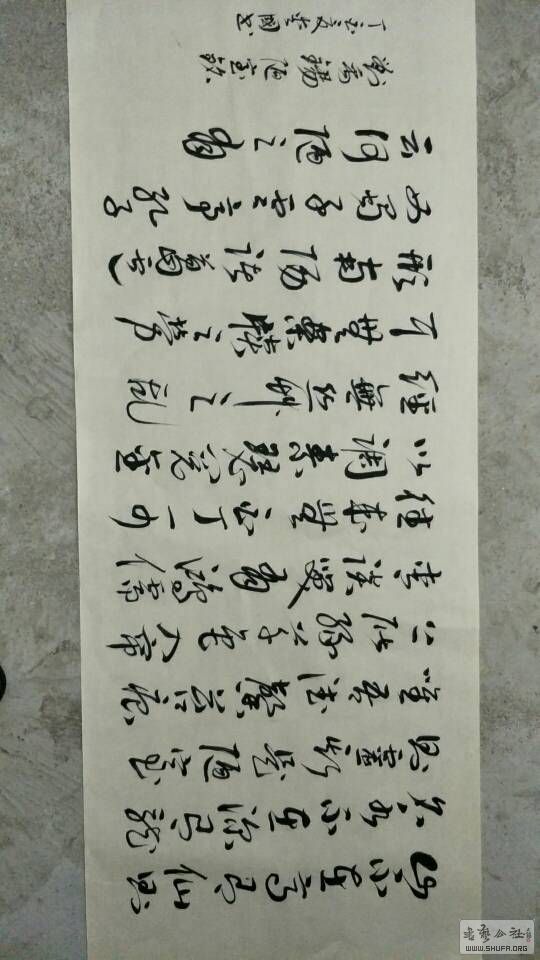 山不在高有仙則
名水不在深有龍
則靈斯是陋室
惟吾德馨苔痕
上階綠草色入簾
青談笑有鴻儒
往來無白丁可
以調素琴閱金
經無絲竹之亂
耳無案牘之勞
形南陽諸葛廬
西蜀子雲亭孔子
云何陋之有
劉禹錫陋室銘
丁酉夏國書
书艺公社
WWW.SHUFA.ORG